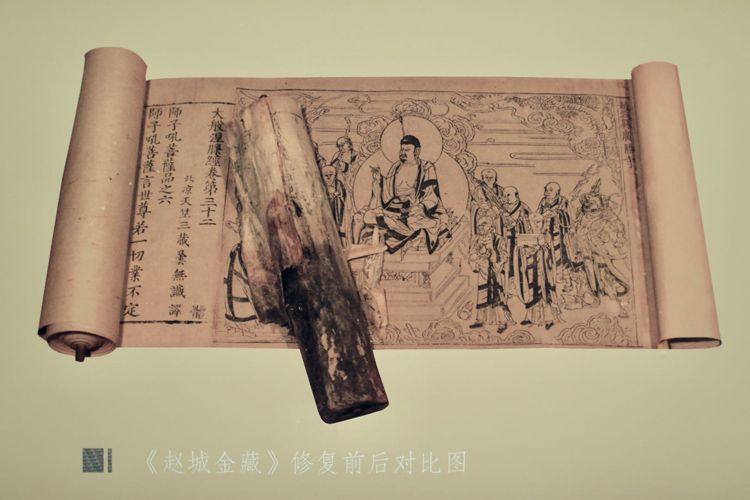 大般涅槃經卷第三十二
北凉天竺三藏曇無讖譯
師子吼菩薩品之六
師子吼菩薩言世尊若一切業不定
《赵城金藏》修复前后对比图